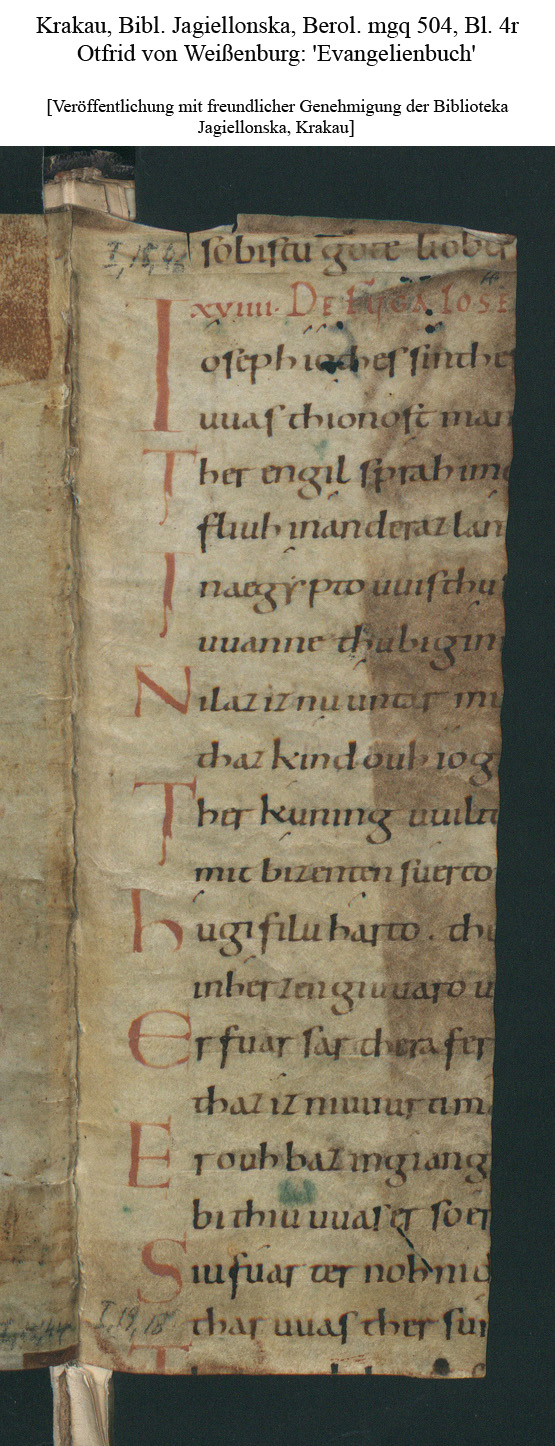 Krakau, Bibl. Jagiellonska, Berol. mgq 504, Bl. 4r
Otfrid von Weißenburg: 'Evangelienbuch'
[Veröffentlichung mit freundlicher Genehmigung der Biblioteka
Jagiellonska, Krakau]
I, 18, 46 sobistu gote liober
xviiii. DE FUGA IOSE
Ioseph io thes sinthes
uuas thionost man
Ther engil sprah imo
fliuh inan deraz lan
In aegypto uuis thu
uuanne thu bigin
Nilaz iz nu untar mu
thaz kind ouh iog
Ther kuning uuilit
mit bizenten suerto
hugi filu harto. thu
in herzen giuuaro u
Er fuar sar thera fer
thaz iz niuuurti m
Er ouh baz ingiang
bithiu uuas er so er
Siu fuar ter noh nid
I, 19, 18 thar uuas ther sun